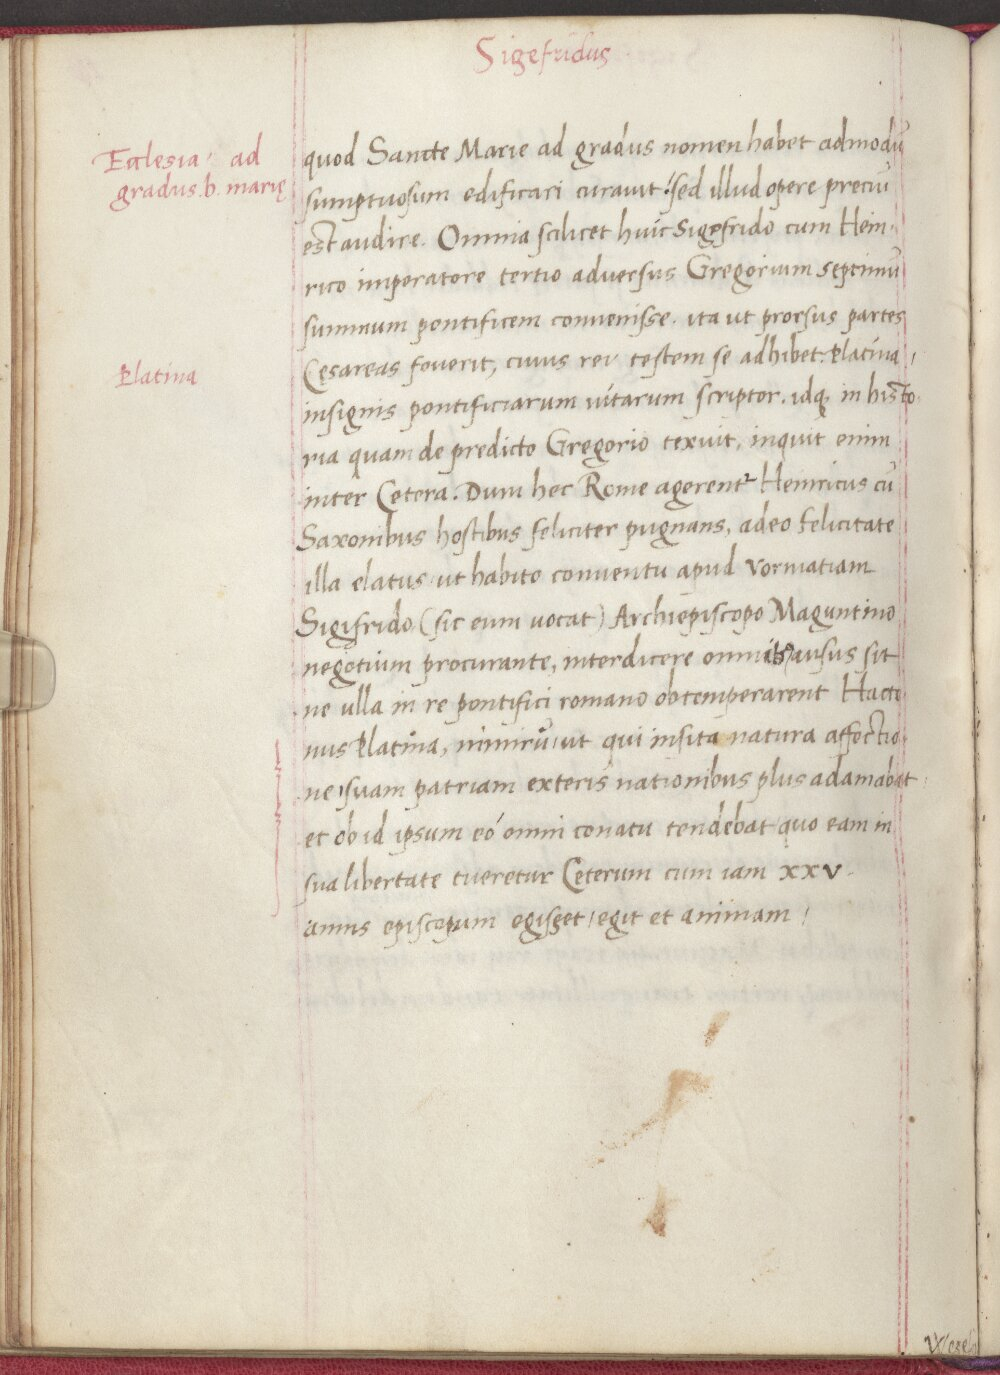 Sigefridus
Ecclesia ad
gradus b. marię
quod Sancte Marie ad gradus nomen habet admodū
sumptuosum edificari curauit / sed illud opere preciū
est audire. Omnia scilicet huic Sigefrido cum Hein-
rico imperatore tertio adversus Gregorium septimū
summum pontificem convenisse. ita ut prorsus partes
Cęsareas foverit, cuius rei testem se adhibet Platina,
Platina
insignis pontificiarum vitarum scriptor. idq, in histo-
ria quam de predicto Gregorio texuit, inquit enim
inter Cetera. Dum hec Rome agerent² Heinricus cū
Saxonibus hostibus feliciter pugnans, adeo felicitate
illa elatus ut habito conventu apud Vormatiam
Sigifrido (sic eum vocat) Archiepiscopo Maguntino
negotium procurante, interdicere omnibus ausus sit
ne ulla in re pontifici romano obtemperarent Hacte
nus Platina, nimirū ut qui insita natura affectio-
ne suam patriam exteris nationibus plus adamabat
et ob id ipsum eó omni conatu tendebat quo eam in
sua libertate tueretur Ceterum cum iam xxv.
annis episcopum egisset / egit et animam /